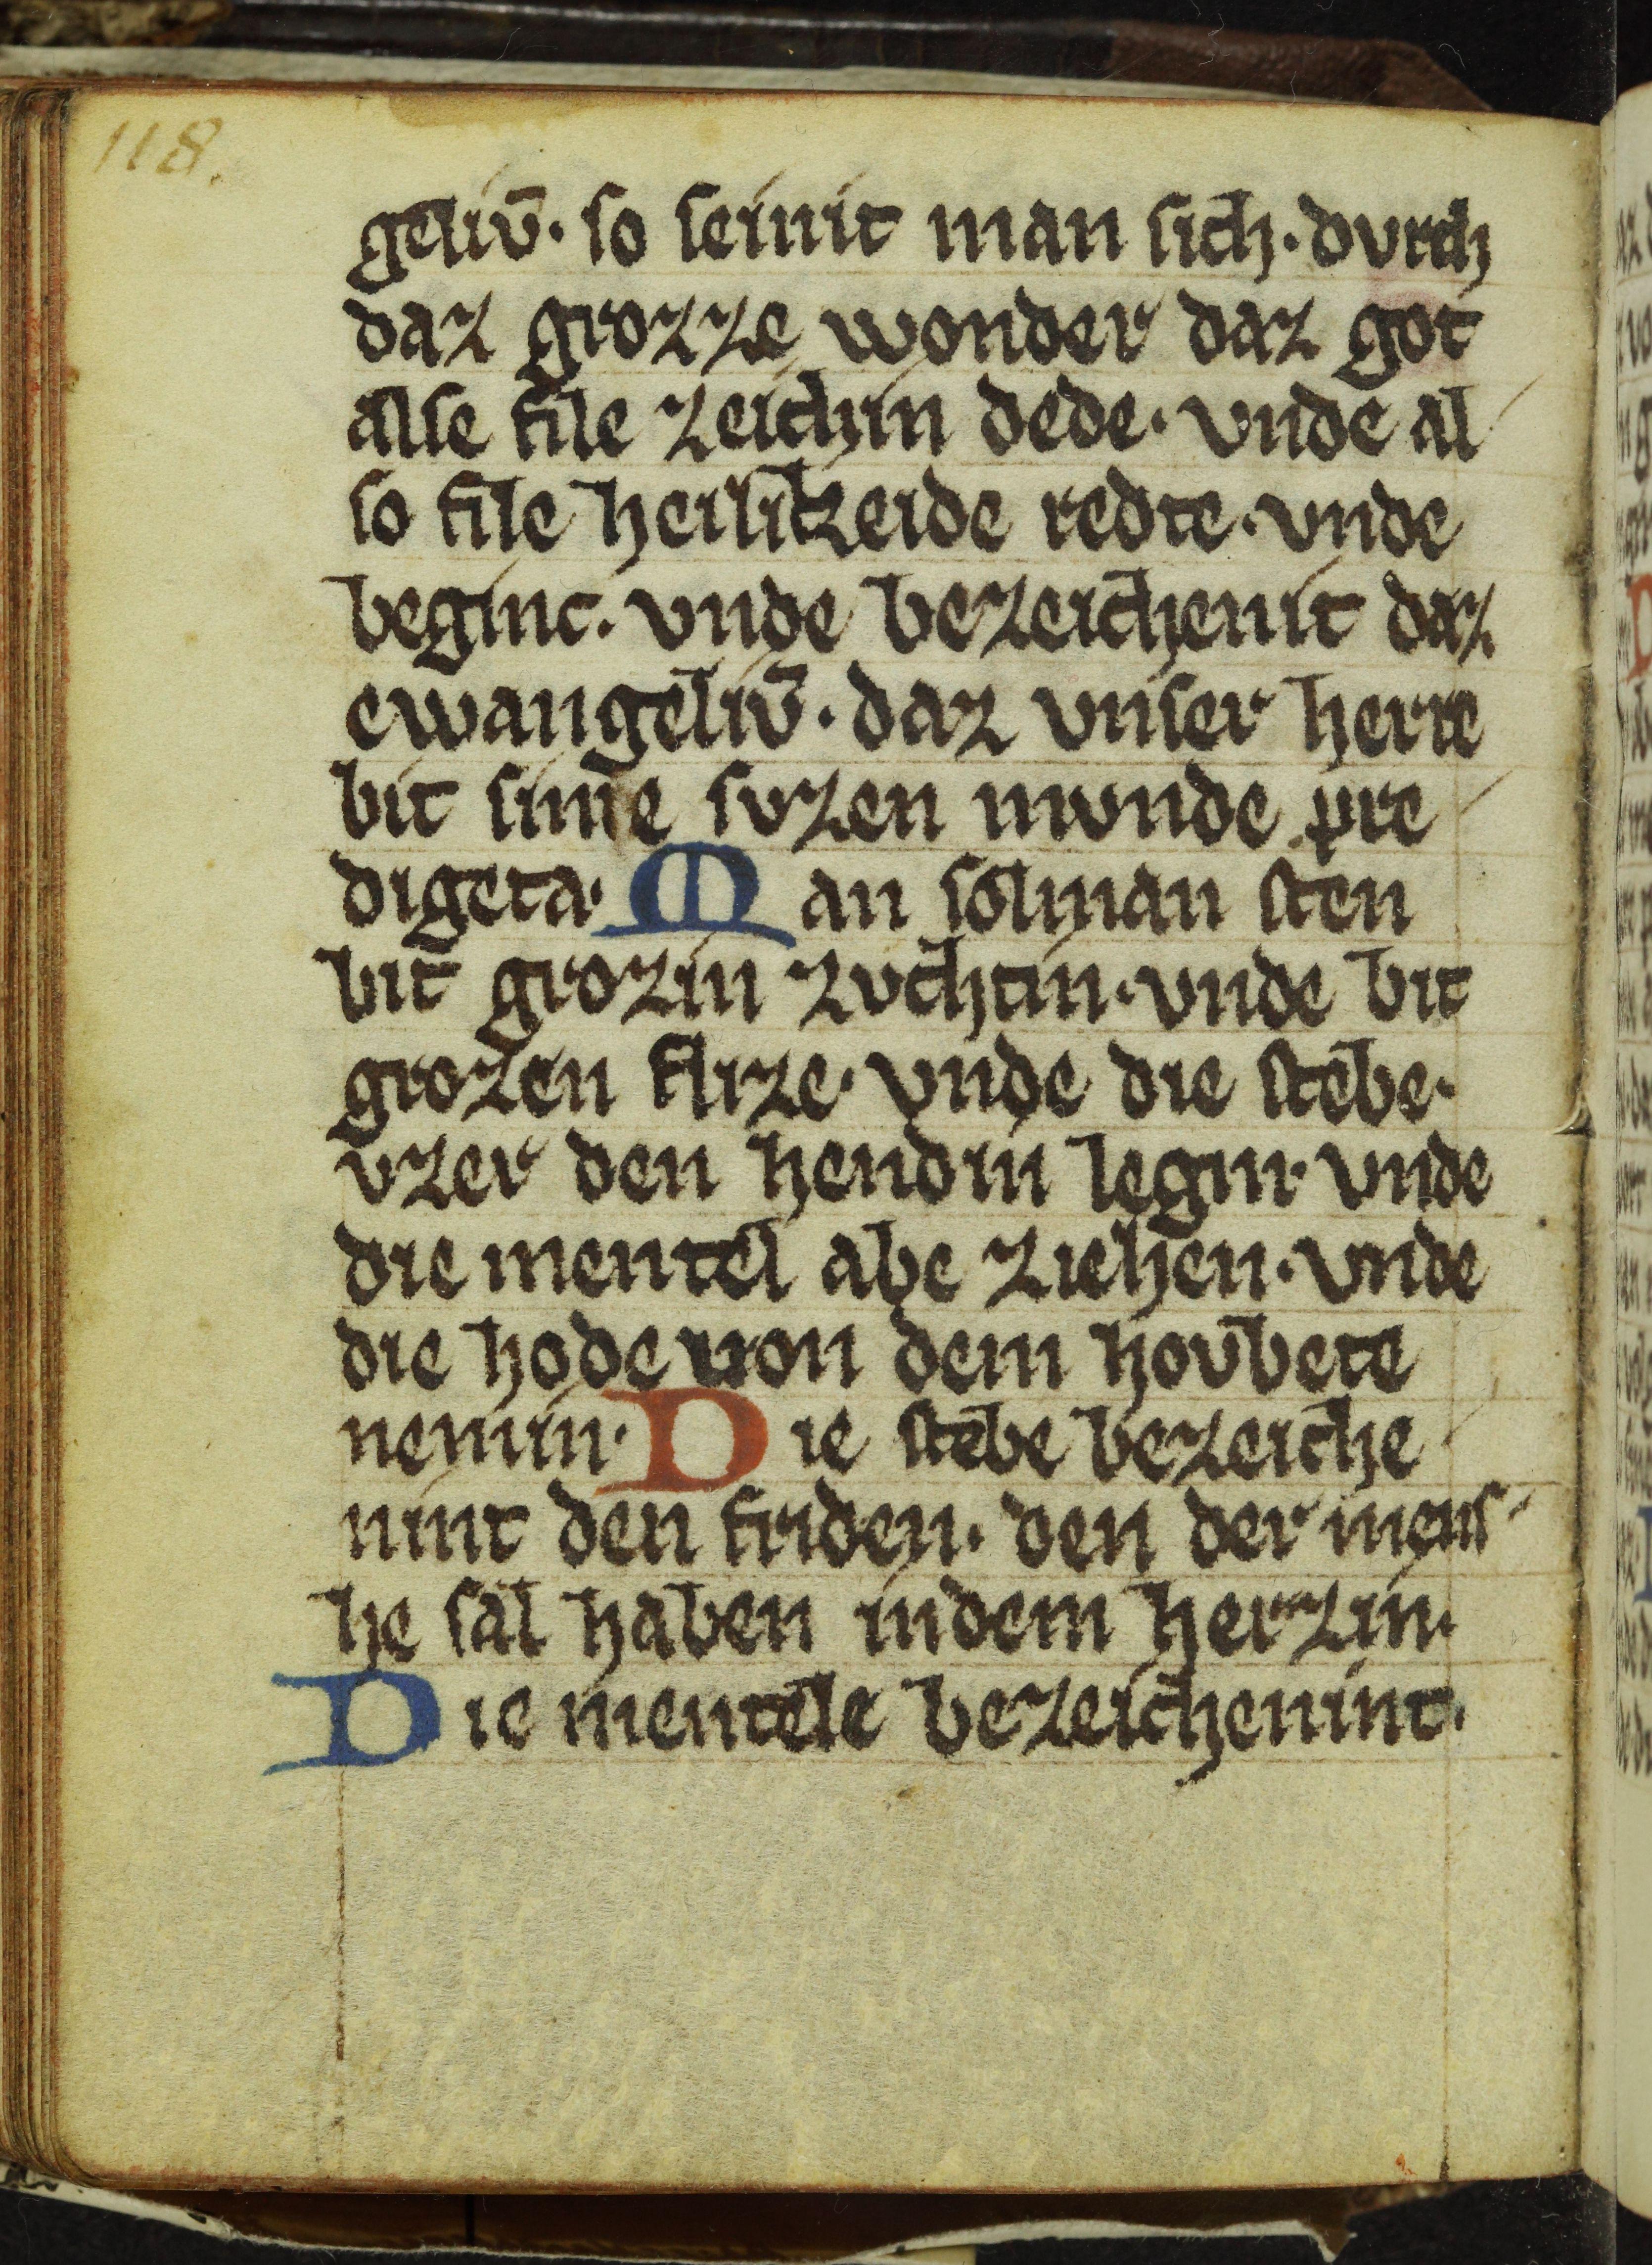 118.
geliv̄. so seinit man sich. dvrch
daz grozze wonder daz got
alse file zeichin dede. vnde al
so file heilikeide redte. vnde
beginc. vnde bezeichenit daz
ewangeliv̄. daz vnser herre
bit sime svzen mvnde pre
digeta. Man sol man sten
bit grozin zvchtin. vnde bit
grozen flize. vnde die stebe.
vzer den hendin legin. vnde
die mentel abe ziehen. vnde
die hode uon dem hovbete
nemin. Die stebe bezeiche
nint den friden. den der mens
he sal haben indem herzin.
Die mentele bezeichenint.